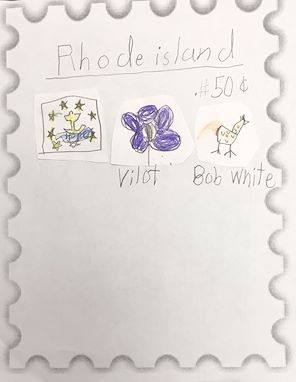 Rhode island
.#50¢
Vilot
Bob White